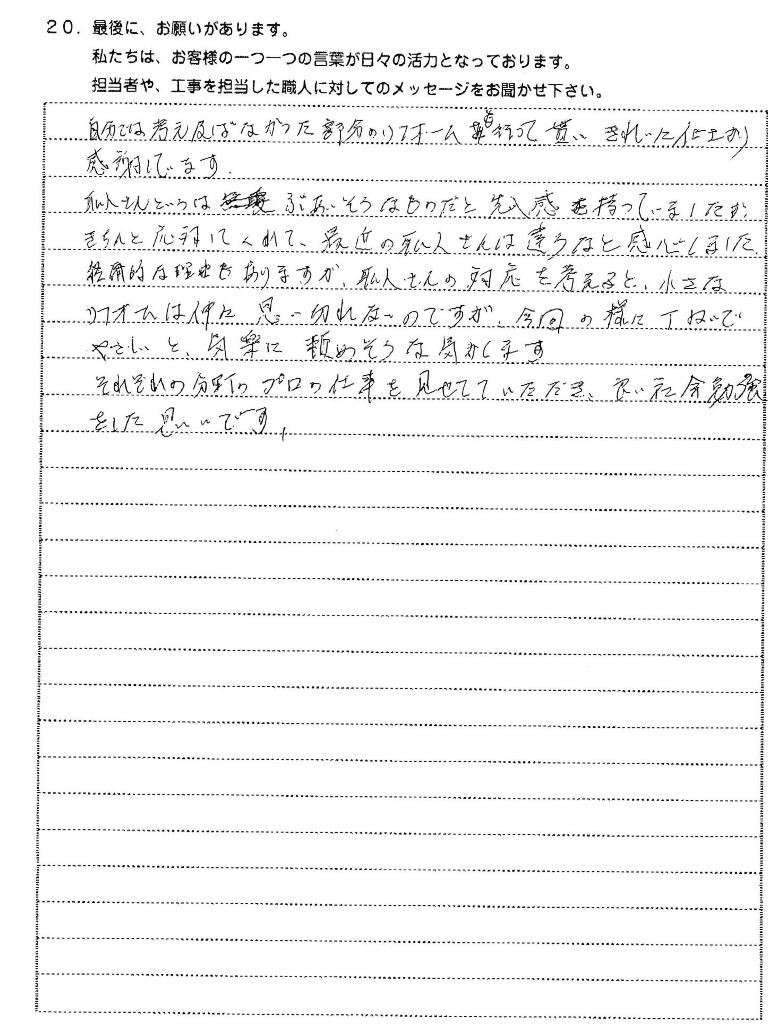 20. 最後に、お願いがあります。
私たちは、お客様の一つ一つの言葉が日々の活力となっております。
担当者や、工事を担当した職人に対してのメッセージをお聞かせ下さい。
自分では考え及ばなかった部分のリフォームも行って貰い きれいに仕上がり
感謝しています.
職人さんというは ぶあいそうなものだと 先入感を持っていましたが
きちんと応対してくれて、最近の職人さんは違うなと感心しました.
経済的な理由もありますが、職人さんの対応を考えると、小さな
リフォームは仲々思い切れないのですが、今回の様に丁ねいで
やさしいと、気楽に頼めそうな気がします
それぞれの分野のプロの仕事を見せてていただき、良い社会勉強
をした思いいです,